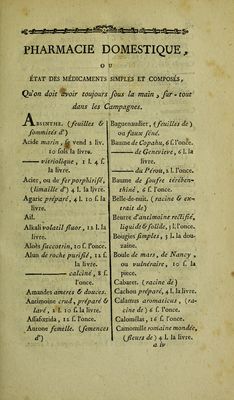 PHARMACIE DOMESTIQUE,
OU
ÉTAT DES MÉDICAMENTS SIMPLES ET COMPOSÉS,
Qu'on doit avoir toujours sous la main, sur-tout
dans les Campagnes.
ABSINTHE. (feuilles &
sommités d')
Acide marin, se vend 2 liv.
10 sols la livre.
—— vitriolique, 1 l. 4 s.
la livre.
Acier, ou de fer porphirisé,
(limaille d') 4 l. la livre.
Agaric préparé, 4 l. 10 s. la
livre.
Ail.
Alkali volatil fluor, 12 l. la
livre.
Aloès succotrin, 10 s. l'once.
Alun de roche purifié, 12 s.
la livre.
—— calciné, 8 s.
l'once.
Amandes ameres & douces.
Antimoine crud, préparé &
lavé, 2 l. 10 s. la livre.
Assafœtida, 12 s. l'once.
Aurone femelle. (semences
d')
Baguenaudier, (feuilles de)
ou faux séné.
Baume de Copahu, 6 s. l'once.
—— de Genevieve, 6 l. la
livre.
—— du Pérou, 2 l. l'once.
Baume de soufre térében-
thiné, 6 s. l'once.
Belle-de-nuit. (racine & ex-
trait de)
Beurre d'antimoine rectifié,
liquide & solide, 1 l. l'once.
Bougies simples, 3 l. la dou-
zaine.
Boule de mars, de Nancy,
ou vulnéraire, 10 s. la
piece.
Cabaret. (racine de)
Cachou préparé, 4 l. la livre.
Calamus aromaticus, (ra-
cine de) 6 s. l'once.
Calomélas, 16 s. l'once.
Camomille romaine mondée,
(fleurs de) 4 l. la livre.
a iv